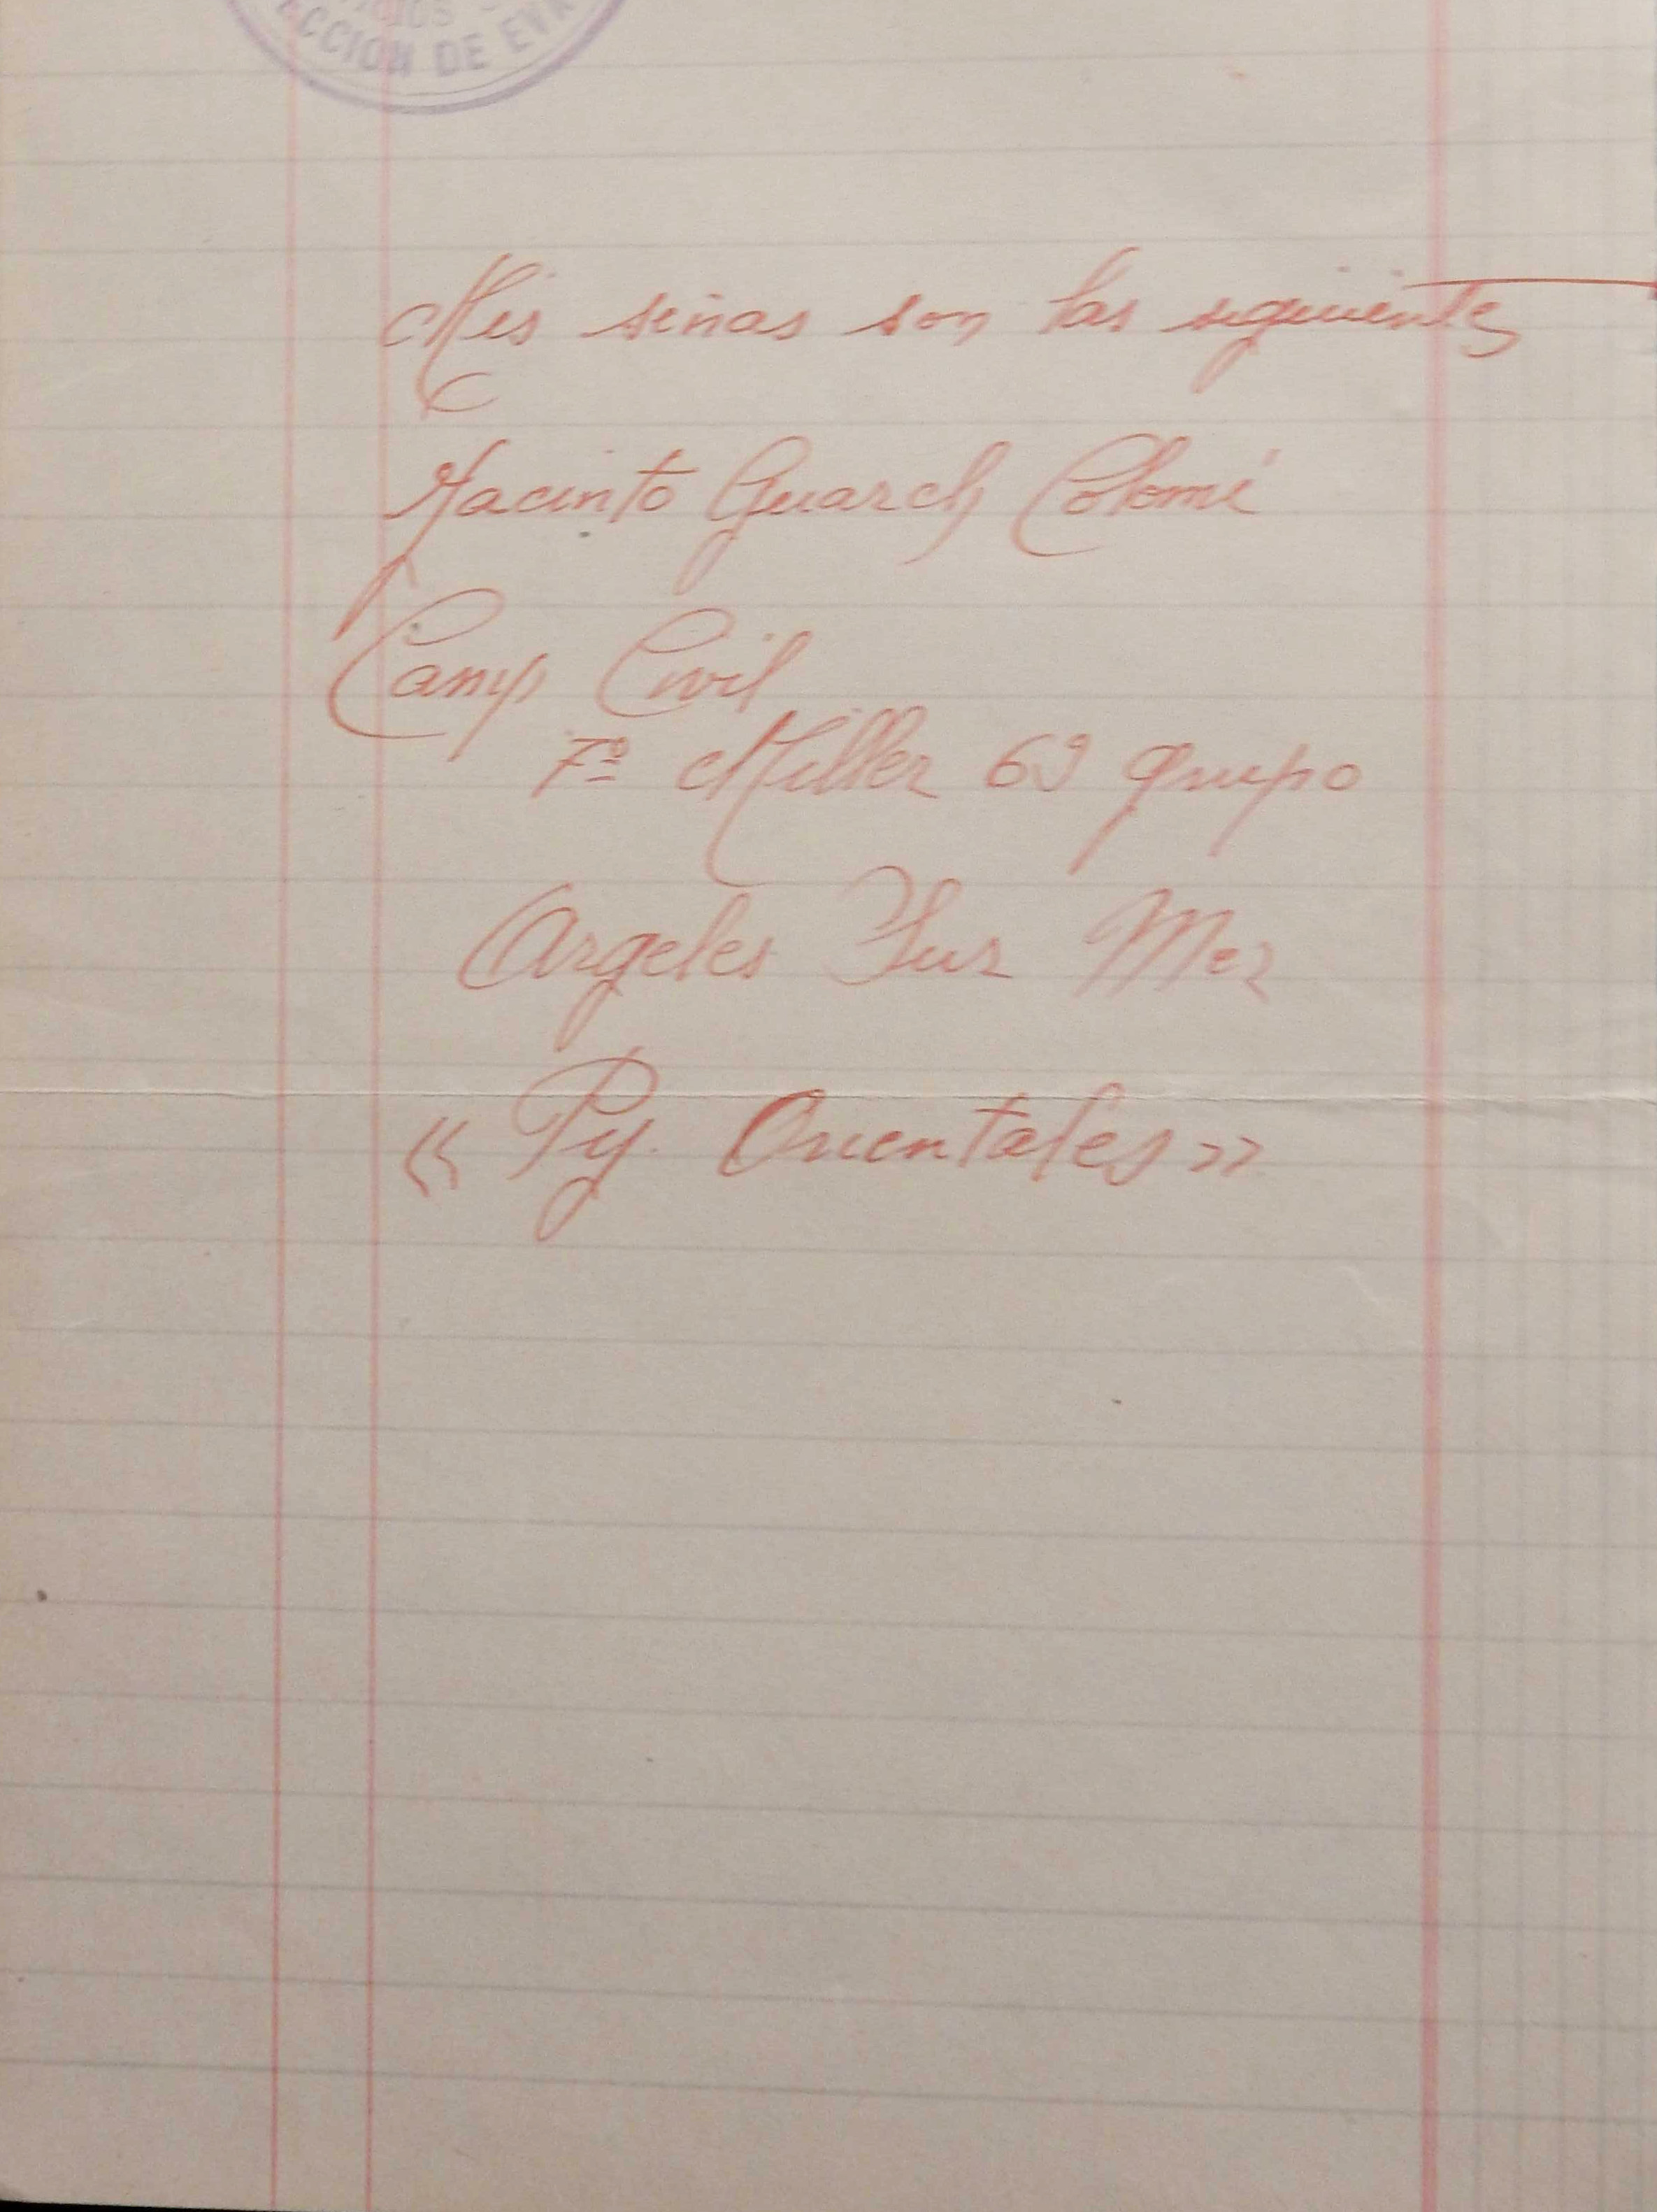 CCION DE EVA
Mis señas son las siguientes
Jacinto Guarch Colomé
Camp Civil
7º Miller 69 grupo
Argeles Sur Mer
« Py. Orientales »